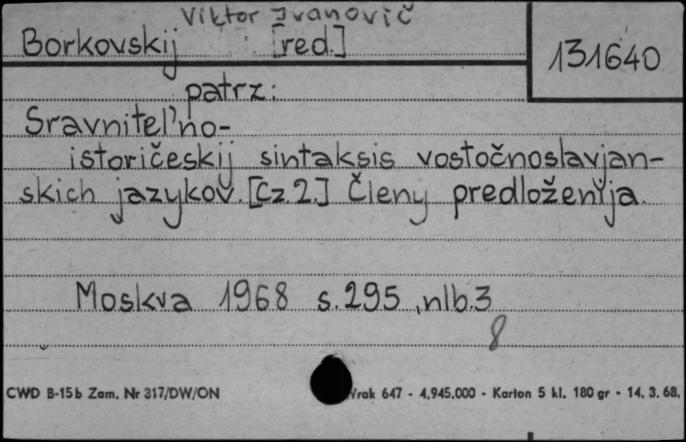 Viktor Ivanovič
Borkovskij [red.]
131640
patrz:
Sravnitel'no-
istoričeskij sintaksis vostočnoslavjan-
skich jazykov. [Cz. 2.] Členy predloženija.
Moskva 1968 s. 295, nlb. 3
8
CWD B-15b Zam. Nr 317/DW/ON
Wrak 647 - 4.945.000 - Karton 5 kl. 180 gr - 14. 3. 68.